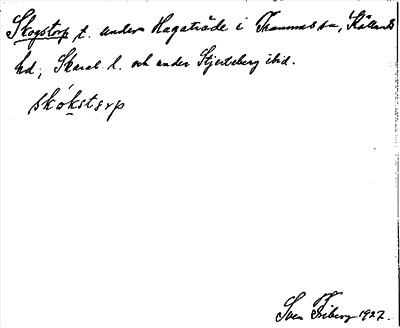 Skogstorp t. under Hagaträde i Trannums sn, Kållands
hd, Skarab. l. och under Stjertsberg ibid.
skókstorp
Sven Friberg 1927.